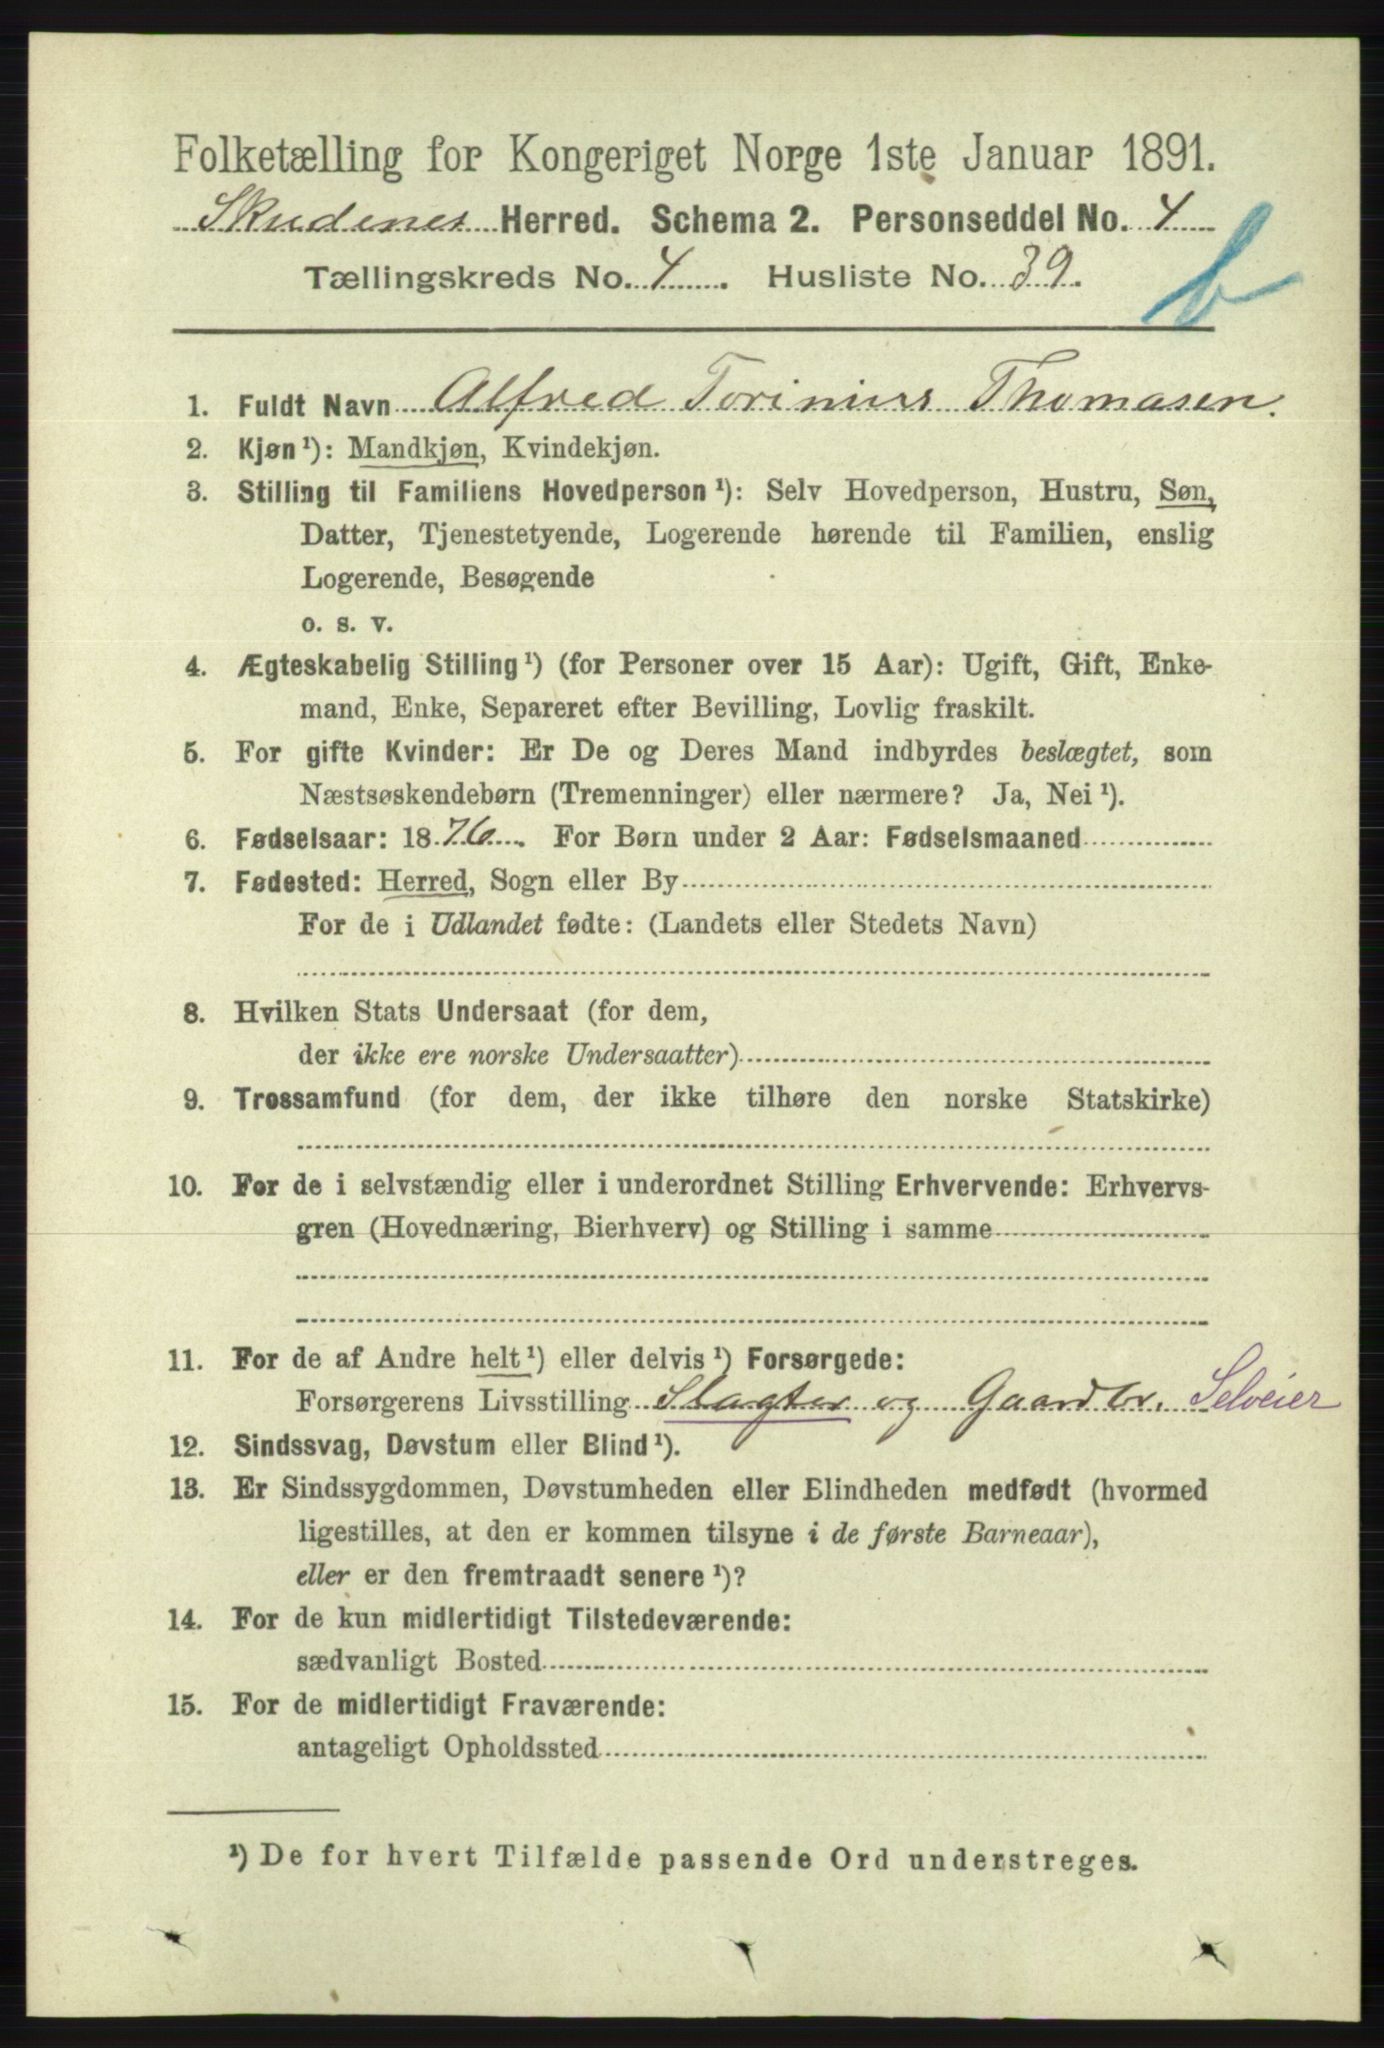 Folketælling for Kongeriget Norge 1ste Januar 1891.
Skudenes Herred. Schema 2. Personseddel No. 4
Tællingskreds No. 4. Husliste No. 39.
b
1. Fuldt Navn Alfred Torinius Thomasen.
2. Kjøn ¹): Mandkjøn, Kvindekjøn.
3. Stilling til Familiens Hovedperson ¹): Selv Hovedperson, Hustru, Søn,
Datter, Tjenestetyende, Logerende hørende til Familien, enslig
Logerende, Besøgende
o. s. v.
4. Ægteskabelig Stilling ¹) (for Personer over 15 Aar): Ugift, Gift, Enke-
mand, Enke, Separeret efter Bevilling, Lovlig fraskilt.
5. For gifte Kvinder: Er De og Deres Mand indbyrdes beslægtet, som
Næstsøskendebørn (Tremenninger) eller nærmere? Ja, Nei ¹).
6. Fødselsaar: 1876. For Børn under 2 Aar: Fødselsmaaned
7. Fødested: Herred, Sogn eller By
For de i Udlandet fødte: (Landets eller Stedets Navn)
8. Hvilken Stats Undersaat (for dem,
der ikke ere norske Undersaatter)
9. Trossamfund (for dem, der ikke tilhøre den norske Statskirke)
10. For de i selvstændig eller i underordnet Stilling Erhvervende: Erhvervs-
gren (Hovednæring, Bierhverv) og Stilling i samme
11. For de af Andre helt ¹) eller delvis ¹) Forsørgede:
Forsørgerens Livsstilling Slagter og Gaardbr. Selveier
12. Sindssvag, Døvstum eller Blind ¹).
13. Er Sindssygdommen, Døvstumheden eller Blindheden medfødt (hvormed
ligestilles, at den er kommen tilsyne i de første Barneaar),
eller er den fremtraadt senere ¹)?
14. For de kun midlertidigt Tilstedeværende:
sædvanligt Bosted
15. For de midlertidigt Fraværende:
antageligt Opholdssted
¹) De for hvert Tilfælde passende Ord understreges.